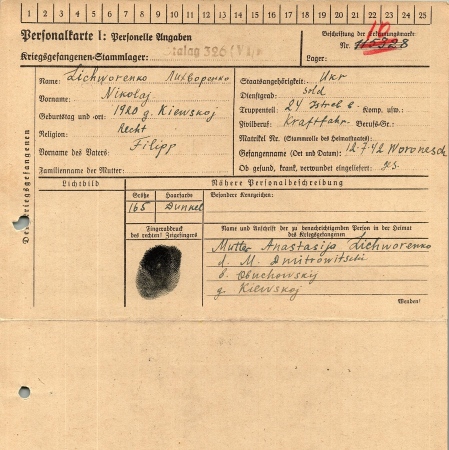 1 2 3 4 5 6 7 8 9 10 11 12 13 14 15 16 17 18 19 20 21 22 23 24 25
Personalkarte I: Personelle Angaben
Beschriftung der Erkennungsmarke
Kriegsgefangenen-Stammlager: Stalag 326 (VI K)
Nr.
Lager:
Des Kriegsgefangenen
Name: Lichworenko Лихворенко
Vorname: Nikolaj
Geburtstag und -ort: 1920 g. Kiewskoj
Religion: Recht
Vorname des Vaters: Filipp
Familienname der Mutter:
Staatsangehörigkeit: Ukr
Dienstgrad: Sold
Truppenteil: 24 Komp. usw.:
Zivilberuf: Kraftfahr. Berufs-Gr.:
Matrikel Nr. (Stammrolle des Heimatstaates):
Gefangennahme (Ort und Datum): 12.7.42 Woronesch
Ob gesund, krank, verwundet eingeliefert:
Lichtbild
Nähere Personalbeschreibung
Größe Haarfarbe Besondere Kennzeichen:
165 Dunkel
Fingerabdruck
des rechten! Zeigefingers
Name und Anschrift der zu benachrichtigenden Person in der Heimat
des Kriegsgefangenen
Mutter Anastasija Lichworenko
d. M. Dmitrowitschi
Obuchowskij
g. Kiewskoj
Wenden!